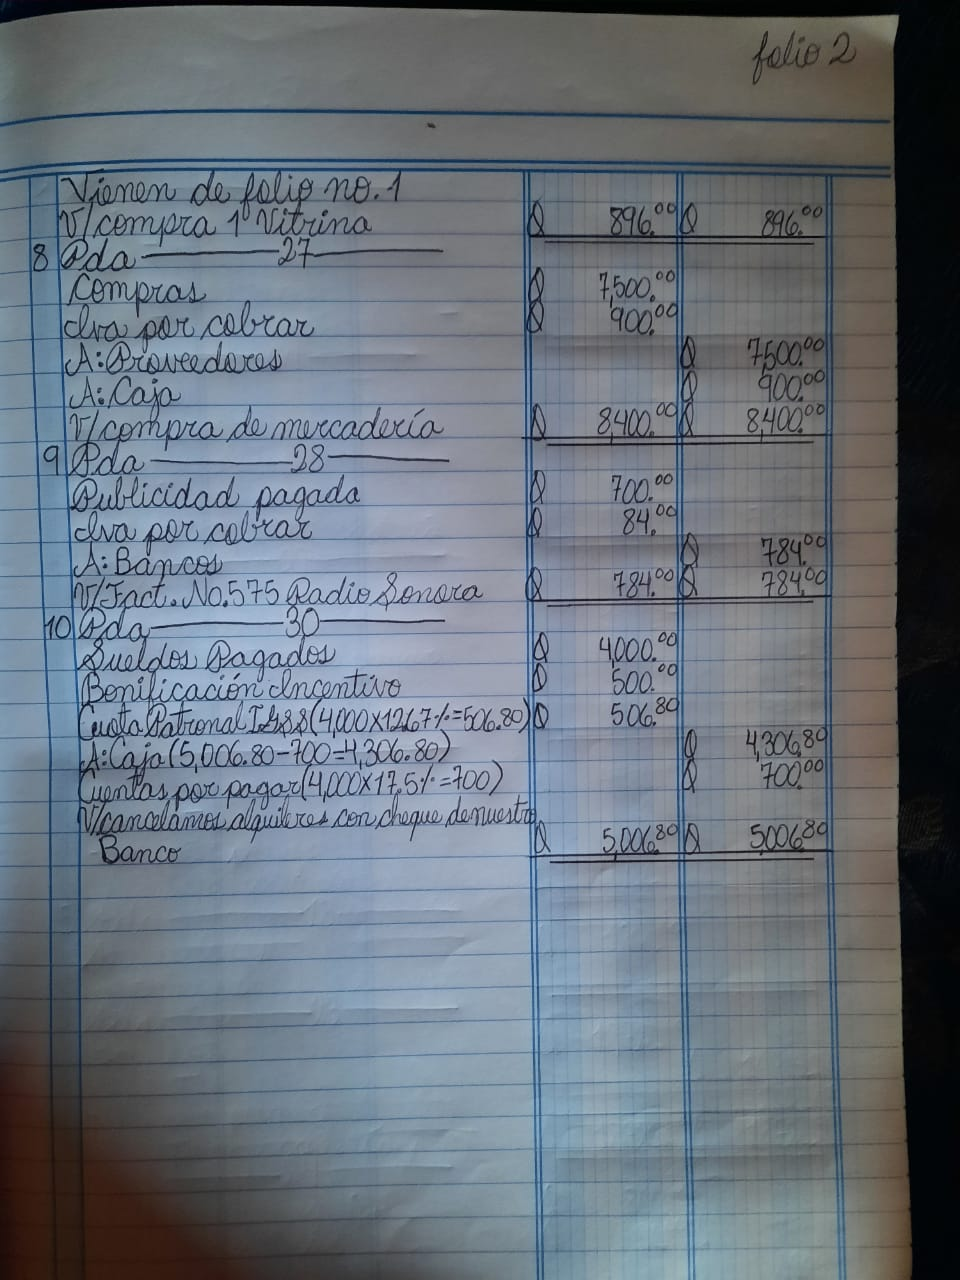 folio 2
Vienen de folio no. 1
V/compra 1 Vitrina Q 896.00 Q 896.00
8 Pda 27
Compras Q 7,500.00
Iva por cobrar Q 900.00
A: Proveedores Q 7500.00
A: Caja Q 900.00
V/compra de mercadería Q 8,400.00 Q 8,400.00
9 Pda 28
Publicidad pagada Q 700.00
Iva por cobrar Q 84.00
A: Bancos Q 784.00
V/Fact. No. 575 Radio Sonora Q 784.00 Q 784.00
10 Pda 30
Sueldos Pagados Q 4,000.00
Bonificación Incentivo Q 500.00
Cuota Patronal IGSS (4,000 x 12.67% = 506.80) Q 506.80
A: Caja (5,006.80 - 700 = 4,306.80) Q 4,306.80
Cuentas por pagar (4,000 x 17.5% = 700) Q 700.00
V/cancelamos alquileres con cheque de nuestro
Banco Q 5,006.80 Q 5,006.80